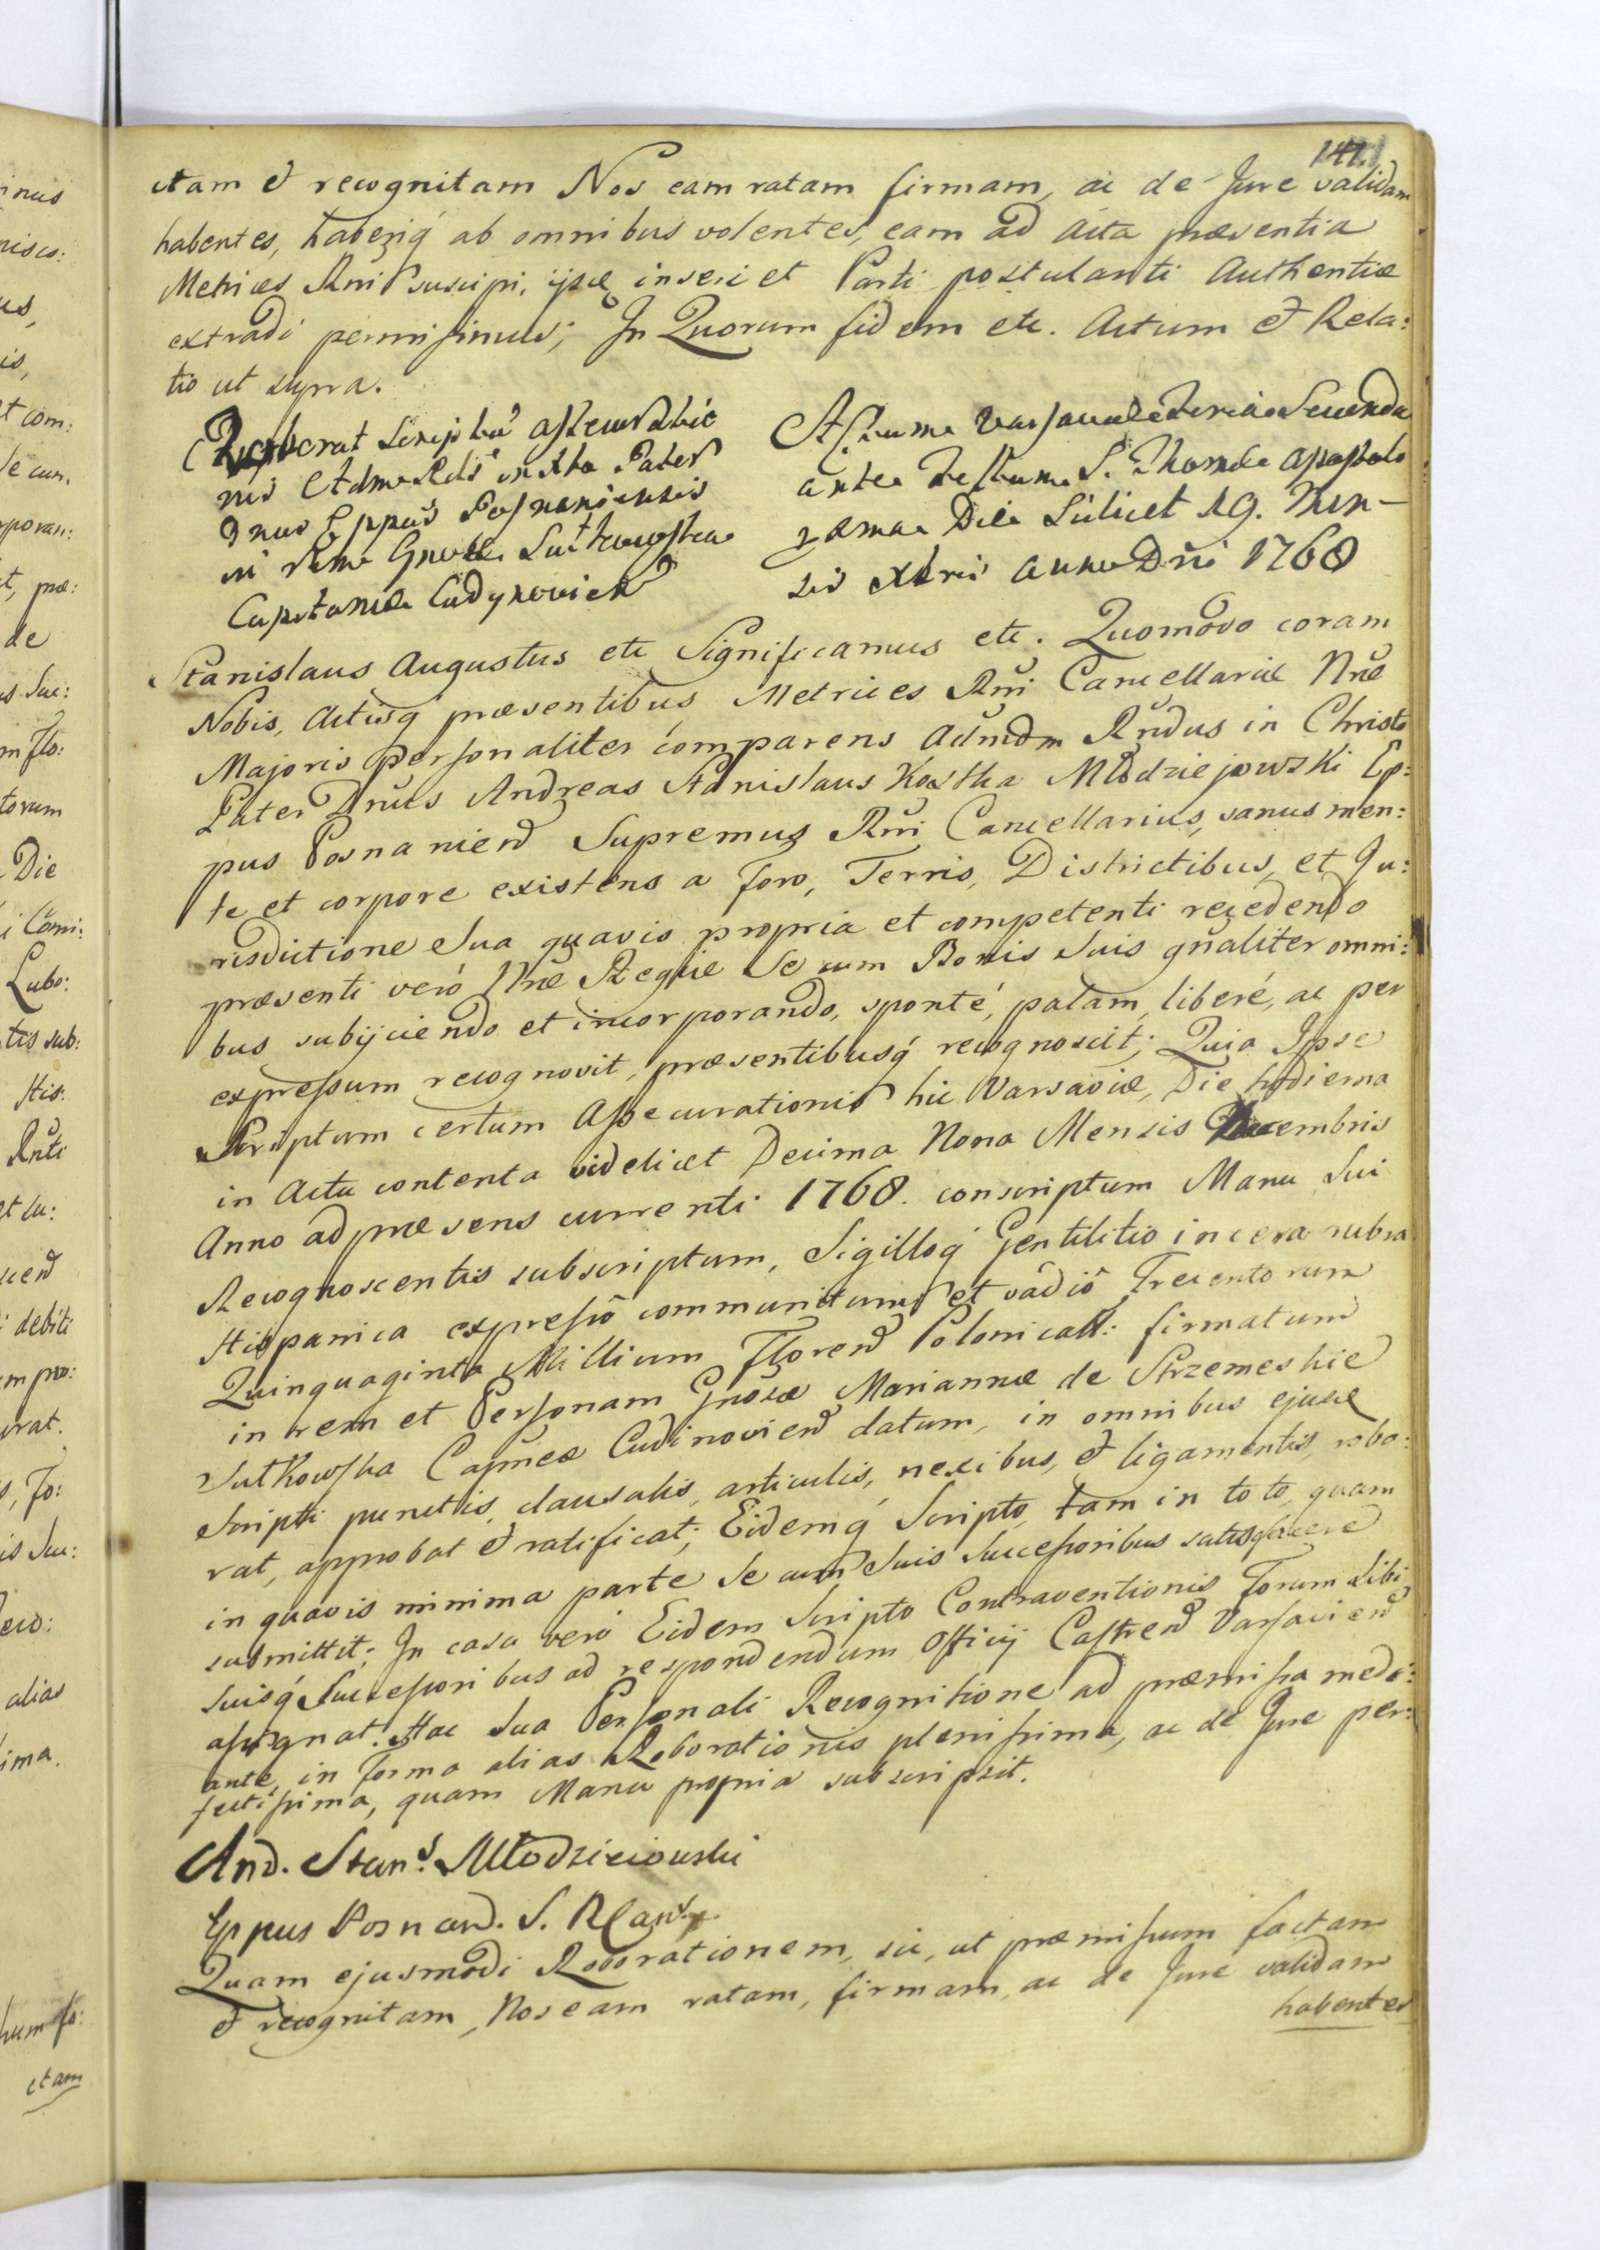 141.
ctam et recognitam Nos eam ratam firmam, ac de Jure validam
habentes, haberiq́ ab omnibus volentes, eam ad Acta præsentia
Metrices Rñi suscipi, ijsq̃ inseri et Parti postulanti Authentice
extradi permisimus; In Quorum fidem etc. Actum et Rela:
tio ut supra.
Roborat Scriptũ Assecuratio
nis Adme Rdus in Xto Pater
Dnus Eppus Posnaniensis
in Rem Gnosæ Sutkowska
Capitanea Cudynovien
Actum Varsaviæ Feria Secunda
ante Festum S. Thomæ Apostoli
proxima Die Scilicet 19. Men-
sis Xbris Anno Dñi 1768
Stanislaus Augustus etc Significamus etc. Quomodo coram
Nobis, Actisq́ præsentibus Metrices Rñi Cancellariæ Nræ
Majoris Personaliter comparens Admdm Rndus in Christo
Pater Dnus Andreas Stanislaus Kostka Młodziejowski Ep:
pus Posnanien Supremus Rñi Cancellarius, sanus men:
te et corpore existens a foro, Terris, Districtibus, et Ju:
risdictione Sua quavis propria et competenti recedendo
præsenti veró Nræ Regiæ Se cum Bonis Suis gñaliter omni:
bus subijciendo et incorporando, sponté, palam, liberé, ac per
expressum recognovit, præsentibusq́ recognoscit; Quia Ipse
Scriptum certum Assecurationis hic Varsaviæ, Die hodierna
in Actu contenta videlicet Decima Nona Mensis Decembris
Anno ad præsens currenti 1768. conscriptum Manu Sui
Recognoscentis subscriptum, Sigilloq́ Gentilitio in cera rubra
Hispanica expresso communitum et vadio Trecentorum
Quinquaginta Millium Floren Polonical: firmatum
in rem et Personam Gnosæ Mariannæ de Strzemeskie
Sutkowska Capneæ Cudinovien datum, in omnibus ejusce
Scripti punctis, clausulis, articulis, nexibus, et ligamentis, robo:
rat, approbat et ratificat; Eidemq́ Scripto, tam in toto, quam
in quavis minima parte Se cum Suis Successoribus satisfacere
submittit; In casu veró Eidem Scripto Contraventionis Forum Sibi
Suisq́ Successoribus ad respondendum Officij Castren Varsavien
assignat. Hac Sua Personali Recognitione ad præmissa medi:
ante, in Forma alias Roborationis plenissima, ac de Jure per:
fectissima, quam Manu propria subscripsit.
And. Stan. Młodzieiowski
Eppus Posnan. S. R Can
Quam ejusmodi Roborationem, sic, ut præmissum factam
et recognitam, Nos eam ratam, firmam, ac de Jure validam
habentes